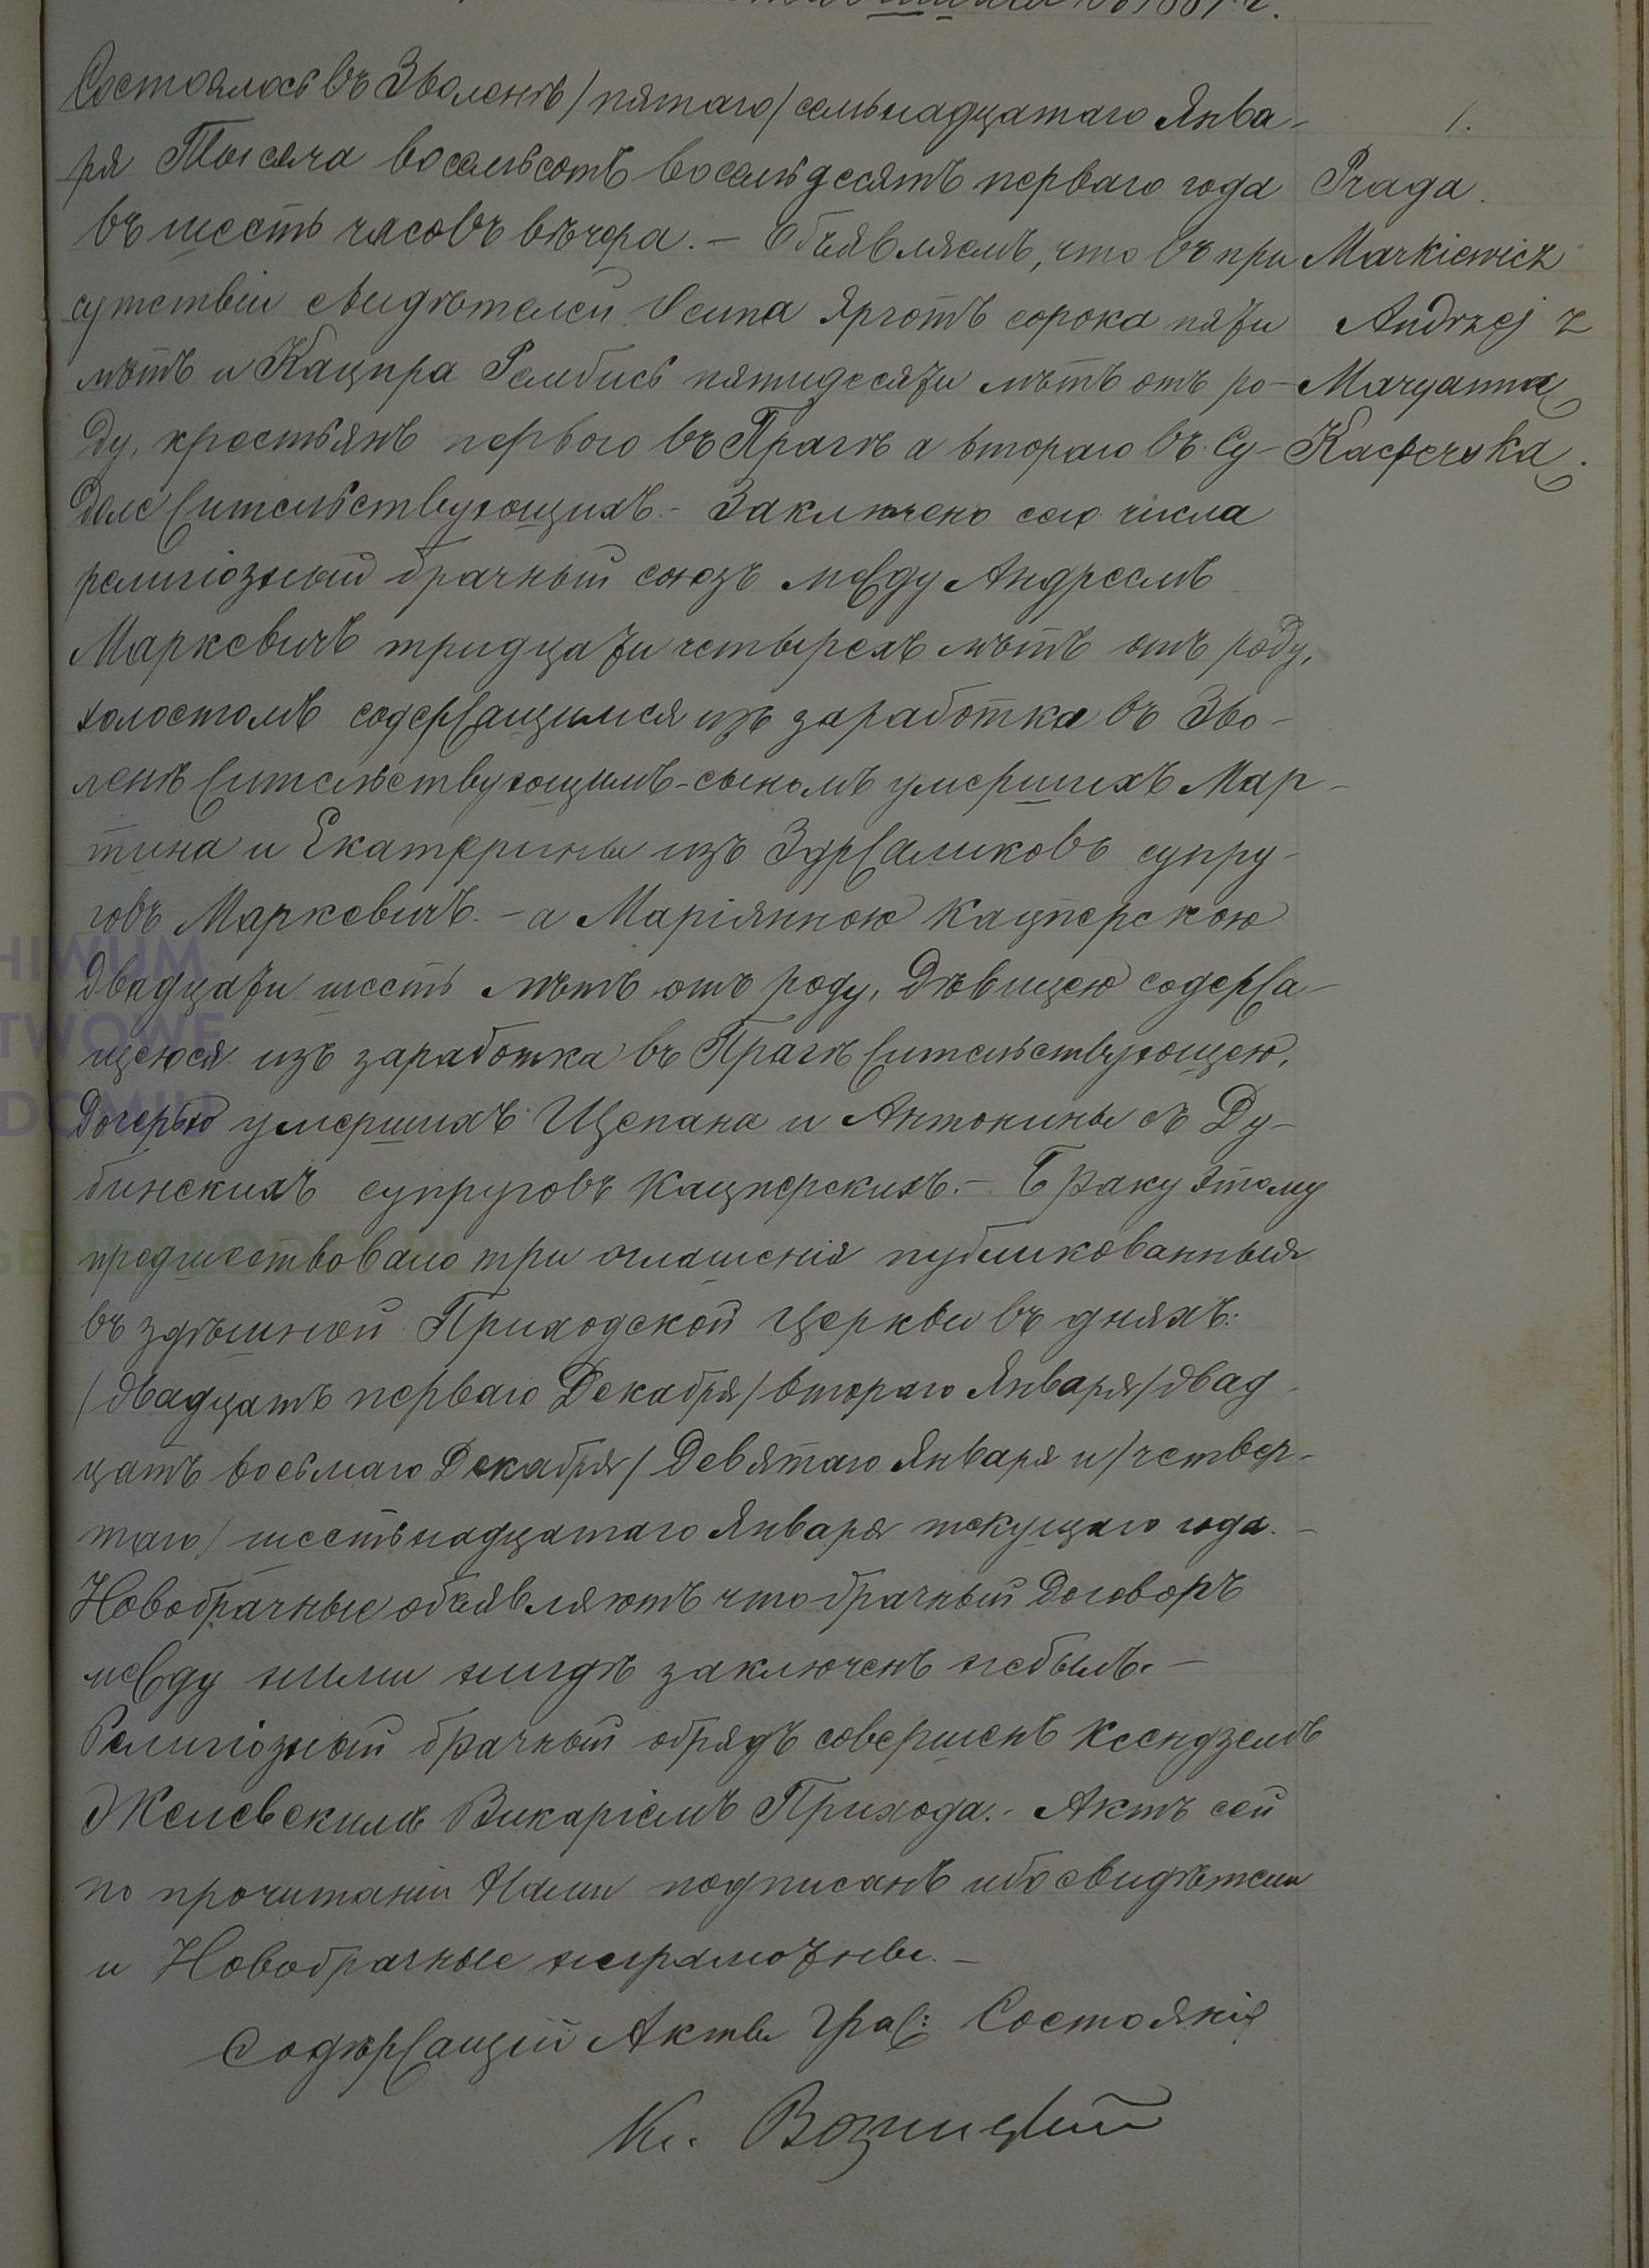 1881 г.
Состоялось въ Зволенѣ /пятаго/ семьнадцатаго Янва-
ря Тысяча восемьсотъ восемьдесятъ перваго года
въ шесть часовъ вѣчера. – Объявляемъ, что въ при
сутствіи свидѣтелей Осипа Ярготъ сорока пяти
лѣтъ и Кацпра Рембись пятидесяти лѣтъ отъ ро-
ду, крестьянъ первого въ Прагѣ а втораго въ Су-
доле жительствующихъ. – Заключено сего числа
религіозный брачный союзъ между Андреемъ
Маркевичъ тридцати четырехъ лѣтъ отъ роду,
холостомъ содержащимся изъ заработка въ Зво-
ленѣ жительствующимъ – сыномъ умершихъ Мар-
тина и Екатерины изъ супру-
говъ Маркевичъ. – а Маріянною Кацперскою
двадцати шесть лѣтъ отъ роду, дѣвицею содержа-
щеюся изъ заработка въ Прагѣ жительствующею,
дочерью умершихъ Щепана и Антонины съ Ду-
бинскихъ супруговъ Кацперскихъ. – Браку этому
предшествовало три оглашенія публикованныя
въ здѣшной Приходской Церкви въ дняхъ:
/двадцать перваго Декабря/ втораго Января /двад-
цать восьмаго Декабря/ Девятаго Января и /четвер-
таго/ шестьнадцатаго Января текущаго года. –
Новобрачные объявляютъ что брачный договоръ
между ними нигдѣ заключенъ небылъ. –
Религіозный брачный обрядъ совершенъ Ксендземъ
Желевскимъ Викаріемъ Прихода. – Актъ сей
по прочитаніи Нами подписанъ ибо свидѣтели
и Новобрачные неграмотны. –
Содѣржащій Акты Граж: Состоянія
Кс.
1.
Praga.
Markiewicz
Andrzej z
Maryanną
Kacperską.